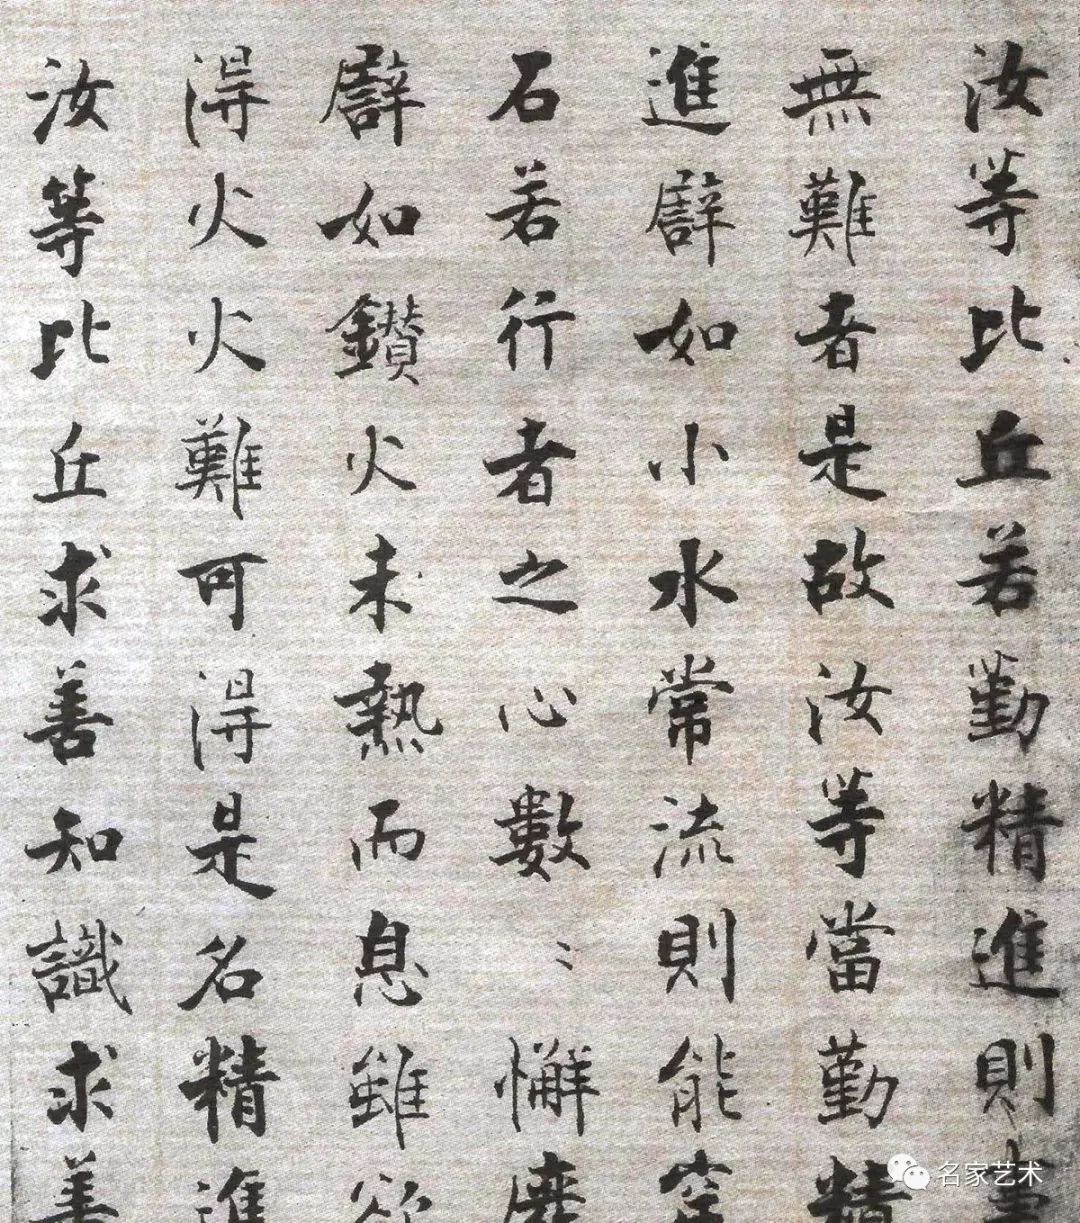 汝等比丘若勤精進則事
無難者是故汝等當勤精
進譬如小水常流則能穿
石若行者之心數〻懈廢
譬如鑽火未熱而息雖欲
得火火難可得是名精進
汝等比丘求善知識求善
名家艺术